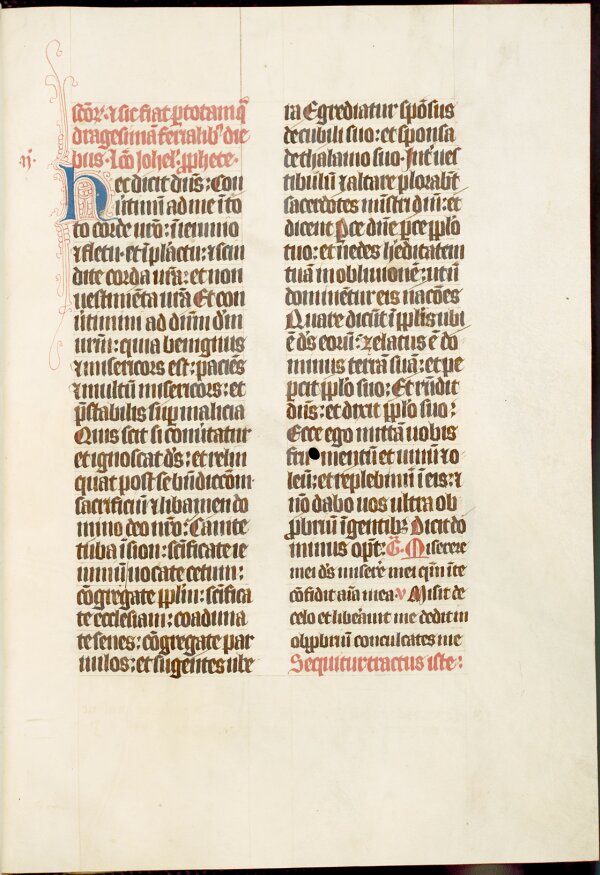 sctōr· ⁊ sic fiat ꝑ totam q̄
dragesimā ferialibꝰ die
bus· Lc̄o Johel· ꝓphete·
ij·
Hec dicit dn̄s: Con
uertimī ad me ī to
to corde vr̄o: ī ieiunio
⁊ fletu· et ī plāctu: ⁊ scin
dite corda vr̄a: et non
uestimēta vr̄a Et con
uertimini ad dn̄m dm̄
vr̄m: quia benignus
⁊ misericors est: paciēs
⁊ multū misericors: et
p̄stabilis suꝑ malicia
Quis scit si conūtatur
et ignoscat ds̄: et relin
quat post se bn̄dictōm·
sacrificiū ⁊ libamen do
mino deo nr̄o: Canite
tuba ī sion: sc̄ificate ie
iuniū uocate cetum:
cōgregate ppl̄m: sc̄ifica
te ecclesiam: coaduna
te senes: cōgregate par
uulos: et sugentes ube
ra Egrediatur spōsus
de cubili suo: et sponsa
de thalamo suo· Int̄ ues
tibulū ⁊ altare plorabt̄
sacerdotes mīstri dn̄i: et
dicent Ꝑce dn̄e ꝑce ppl̄o
tuo: et ne des h̄editatem
tuā in obliuionē: ut n̄
dominēt̄ur eis nacōes
Quare dicūt ī ppl̄is ubi
ē ds̄ eorū: zelatus ē do
minus terrā suā: et pe
ꝑcit ppl̄o suo: Et rn̄dit
dn̄s: et dixit ppl̄o suo:
Ecce ego mittā uobis
fru mentū et uinū ⁊ o
leū: et replebimī ī eis: ⁊
nō dabo uos ultra ob
ꝓbriū ī gentibꝫ Dicit do
minus opt̄: G̃· Miserere
mei ds̄ miserē mei qm̄ ī te
cōfidit aīa mea· v̄ Misit de
celo et liberauit me dedit in
obꝓbriū conculcātes me
Sequitur tractus iste: